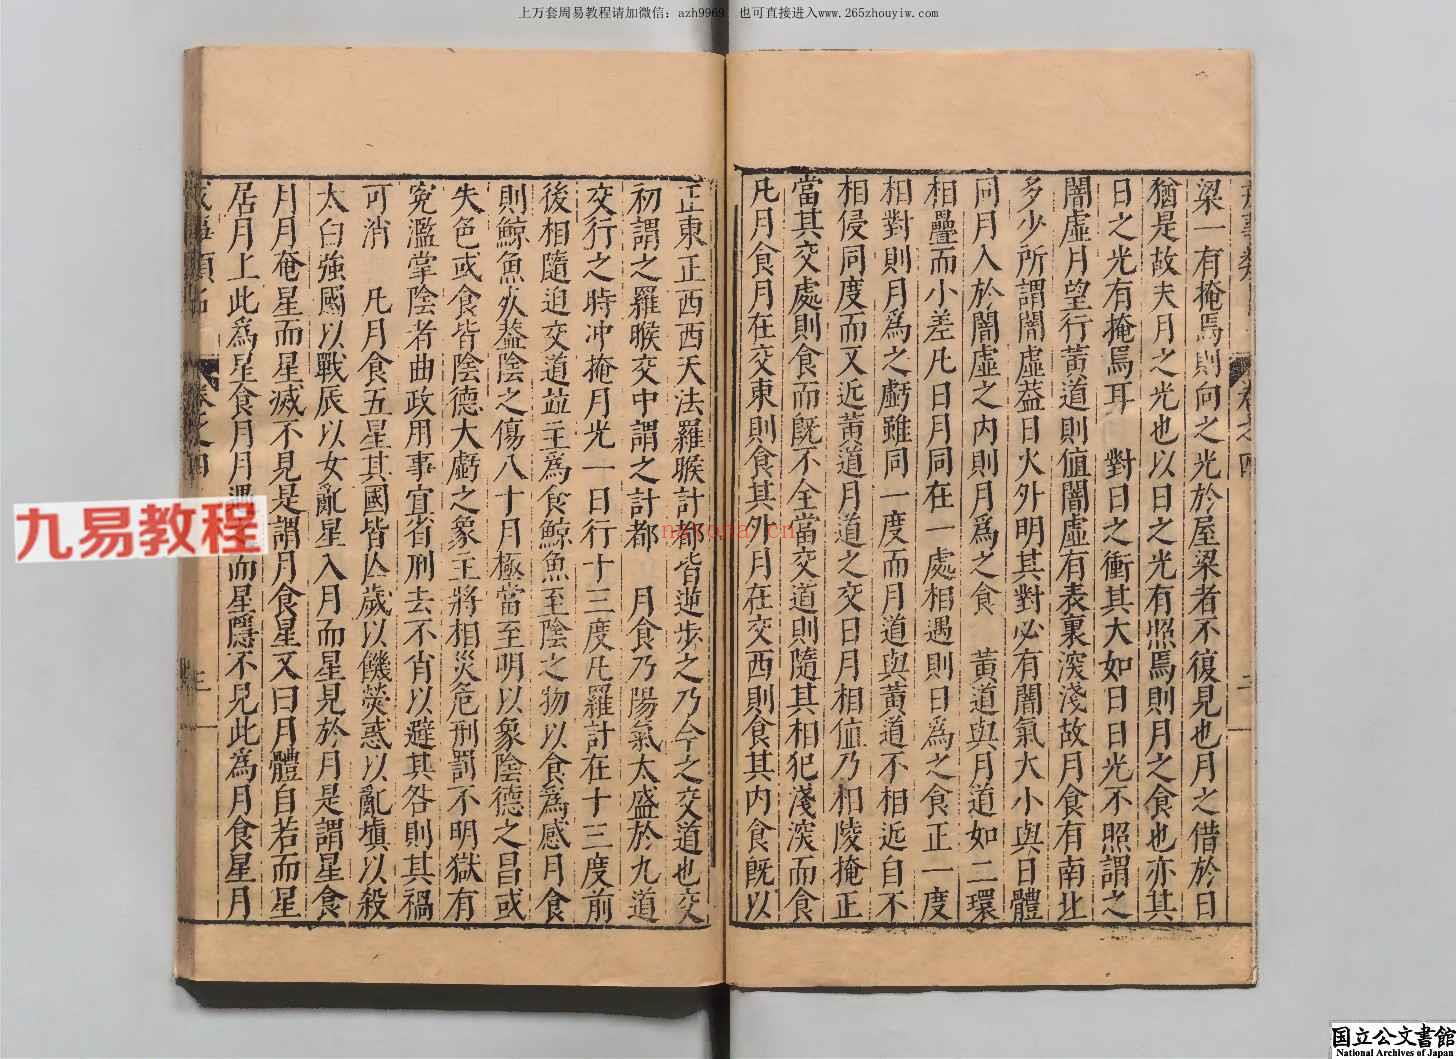 上万套周易教程请加微信：azh9969，也可直接进入www.265zhouyiw.com
梁一有掩焉則向之光於屋梁者不復見也月之借於日
猶是故夫月之光也以日之光有照焉則月之食也亦其
日之光有掩焉耳　對日之衝其大如日日光不照謂之
闇虛月望行黃道則值闇虛有表裏深淺故月食有南北
多少所謂闇虛益日火外明其對必有闇氣大小與日體
同月入於闇虛之内則月爲之食　黃道與月道如二環
相疊而小差凡日月同在一處相遇則日爲之食正一度
相對則月爲之虧雖同一度而月道與黃道不相近自不
相侵同度而又近黃道月道之交日月相值乃相陵掩正
當其交處則食而既不全當交道則隨其相犯淺深而食
凡月食月在交東則食其外月在交西則食其内食既以
正東正西西天法羅睺計都皆逆步之乃今之交道也交
初謂之羅睺交中謂之計都　月食乃陽氣太盛於九道
交行之時冲掩月光一日行十三度凡羅計在十三度前
後相隨迫交道竝主爲食鯨魚至陰之物以食爲感月食
則鯨魚必盡陰之傷八十月極當至明以象陰德之昌或
失色或食皆陰德大虧之象主將相災危刑罰不明獄有
寃濫掌陰者曲政用事宜省刑去不肖以避其咎則其禍
可消　凡月食五星其國皆亾歲以饑熒惑以亂塡以殺
太白強國以戰辰以女亂星入月而星見於月是謂星食
月月奄星而星滅不見是謂月食星又曰月體自若而星
居月上此爲星食月月而星隱不見此爲月食星月
卷之四
九易教程
nayona.cn
国立公文書館
National Archives of Japan